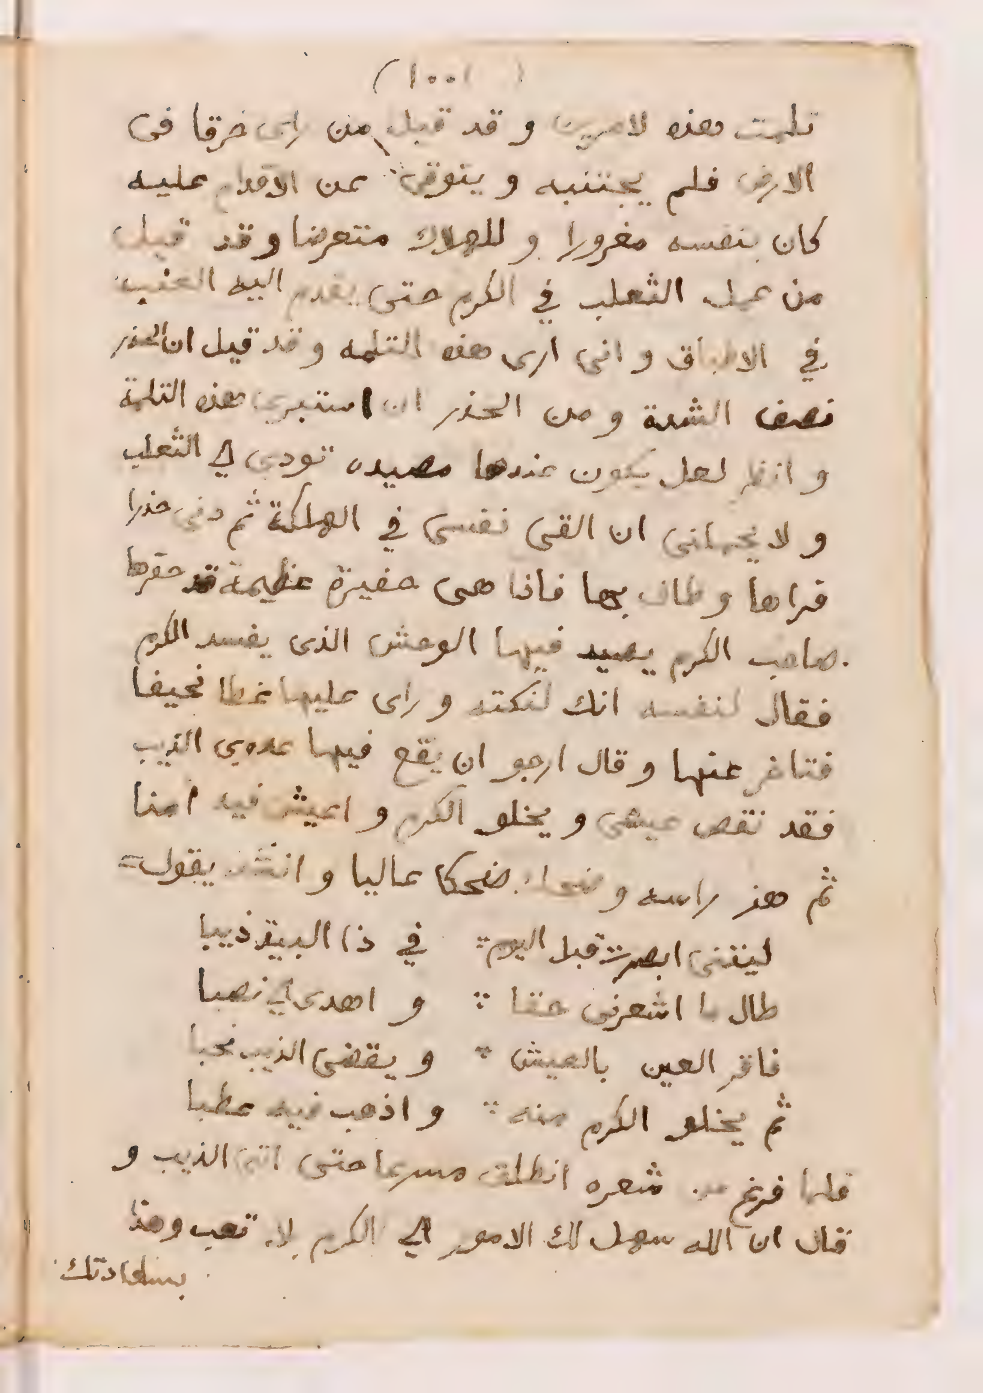 (١٠٠١)
تلمت هذه لامرين و قد قيل من راى خرقا فى
الارض فلم يجتنبه و يتوقى عن الاقدام عليه
كان بنفسه مغرورا و للهلاك متعرضا و قد قيل
من عمل الثعلب في الكرم حتى يقدم اليه العنب
في الاطباق و انى ارى هذه التلمه و قد قيل ان الحذر
نصف الشدة و من الحذر ان استبرى هذه التلمة
و انظر لعل يكون عندها مصيده تودى الي الثعلب
و لا يحملنى ان القى نفسى في الهلكة ثم دنى حذرا
فراها و طاف بها فاذا هى حفيرة عظيمة قد حفرها
صاحب الكرم يصيد فيها الوحش الذى يفسد الكرم
فقال لنفسه انك لنكته و راى عليها غطا نحيفا
فتاخر عنها و قال ارجو ان يقع فيها عدوى الذيب
فقد نقص عيشى و يخلو الكرم و اعيش فيه امنا
ثم هز راسه و ضحك ضحكا عاليا و انشد يقول =
ليتنى ابصرت قبل اليوم ∴ في ذا البية ذيبا
طال ما اشعرنى حنقا ∴ و اهدى لي نصبا
فاقر العين بالعيش ∴ و يقضى الذيب نحبا
ثم يخلو الكرم منه ∴ و اذهب فيه عطبا
فلما فرغ من شعره انطلق مسرعا حتى اتى الذيب و
قال ان الله سهل لك الامور الي الكرم بلا تعب وهذا
بسعادتك